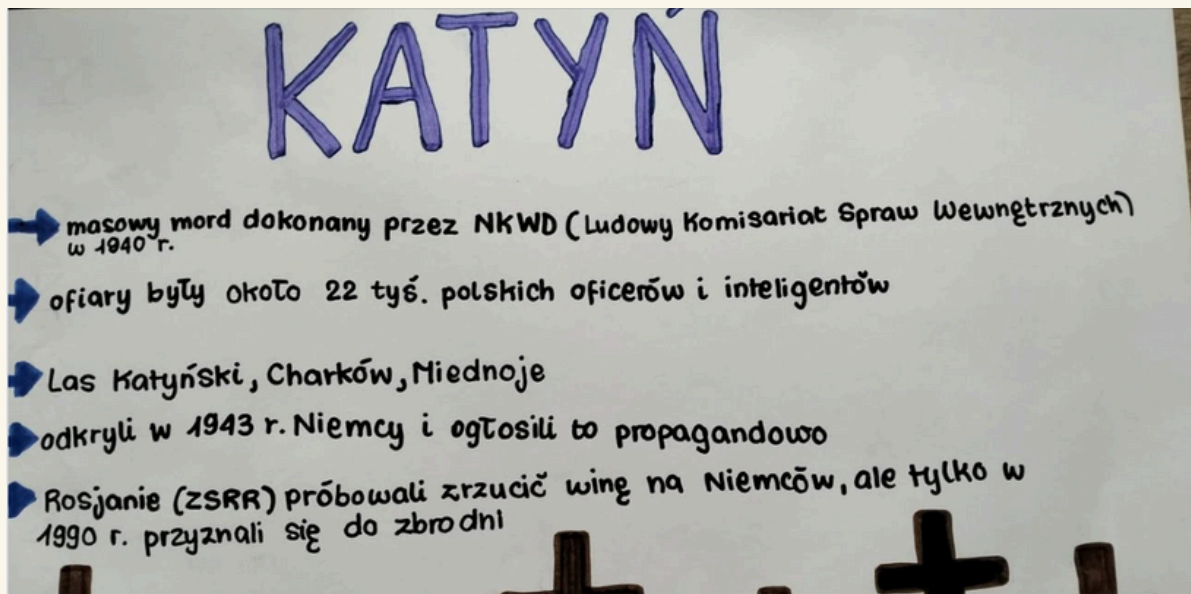 KATYŃ
masowy mord dokonany przez NKWD (Ludowy Komisariat Spraw Wewnętrznych)
w 1940 r.
ofiary były około 22 tyś. polskich oficerów i inteligentów
Las Katyński, Charków, Miednoje
odkryli w 1943 r. Niemcy i ogłosili to propagandowo
Rosjanie (ZSRR) próbowali zrzucić winę na Niemców, ale tylko w
1990 r. przyznali się do zbrodni